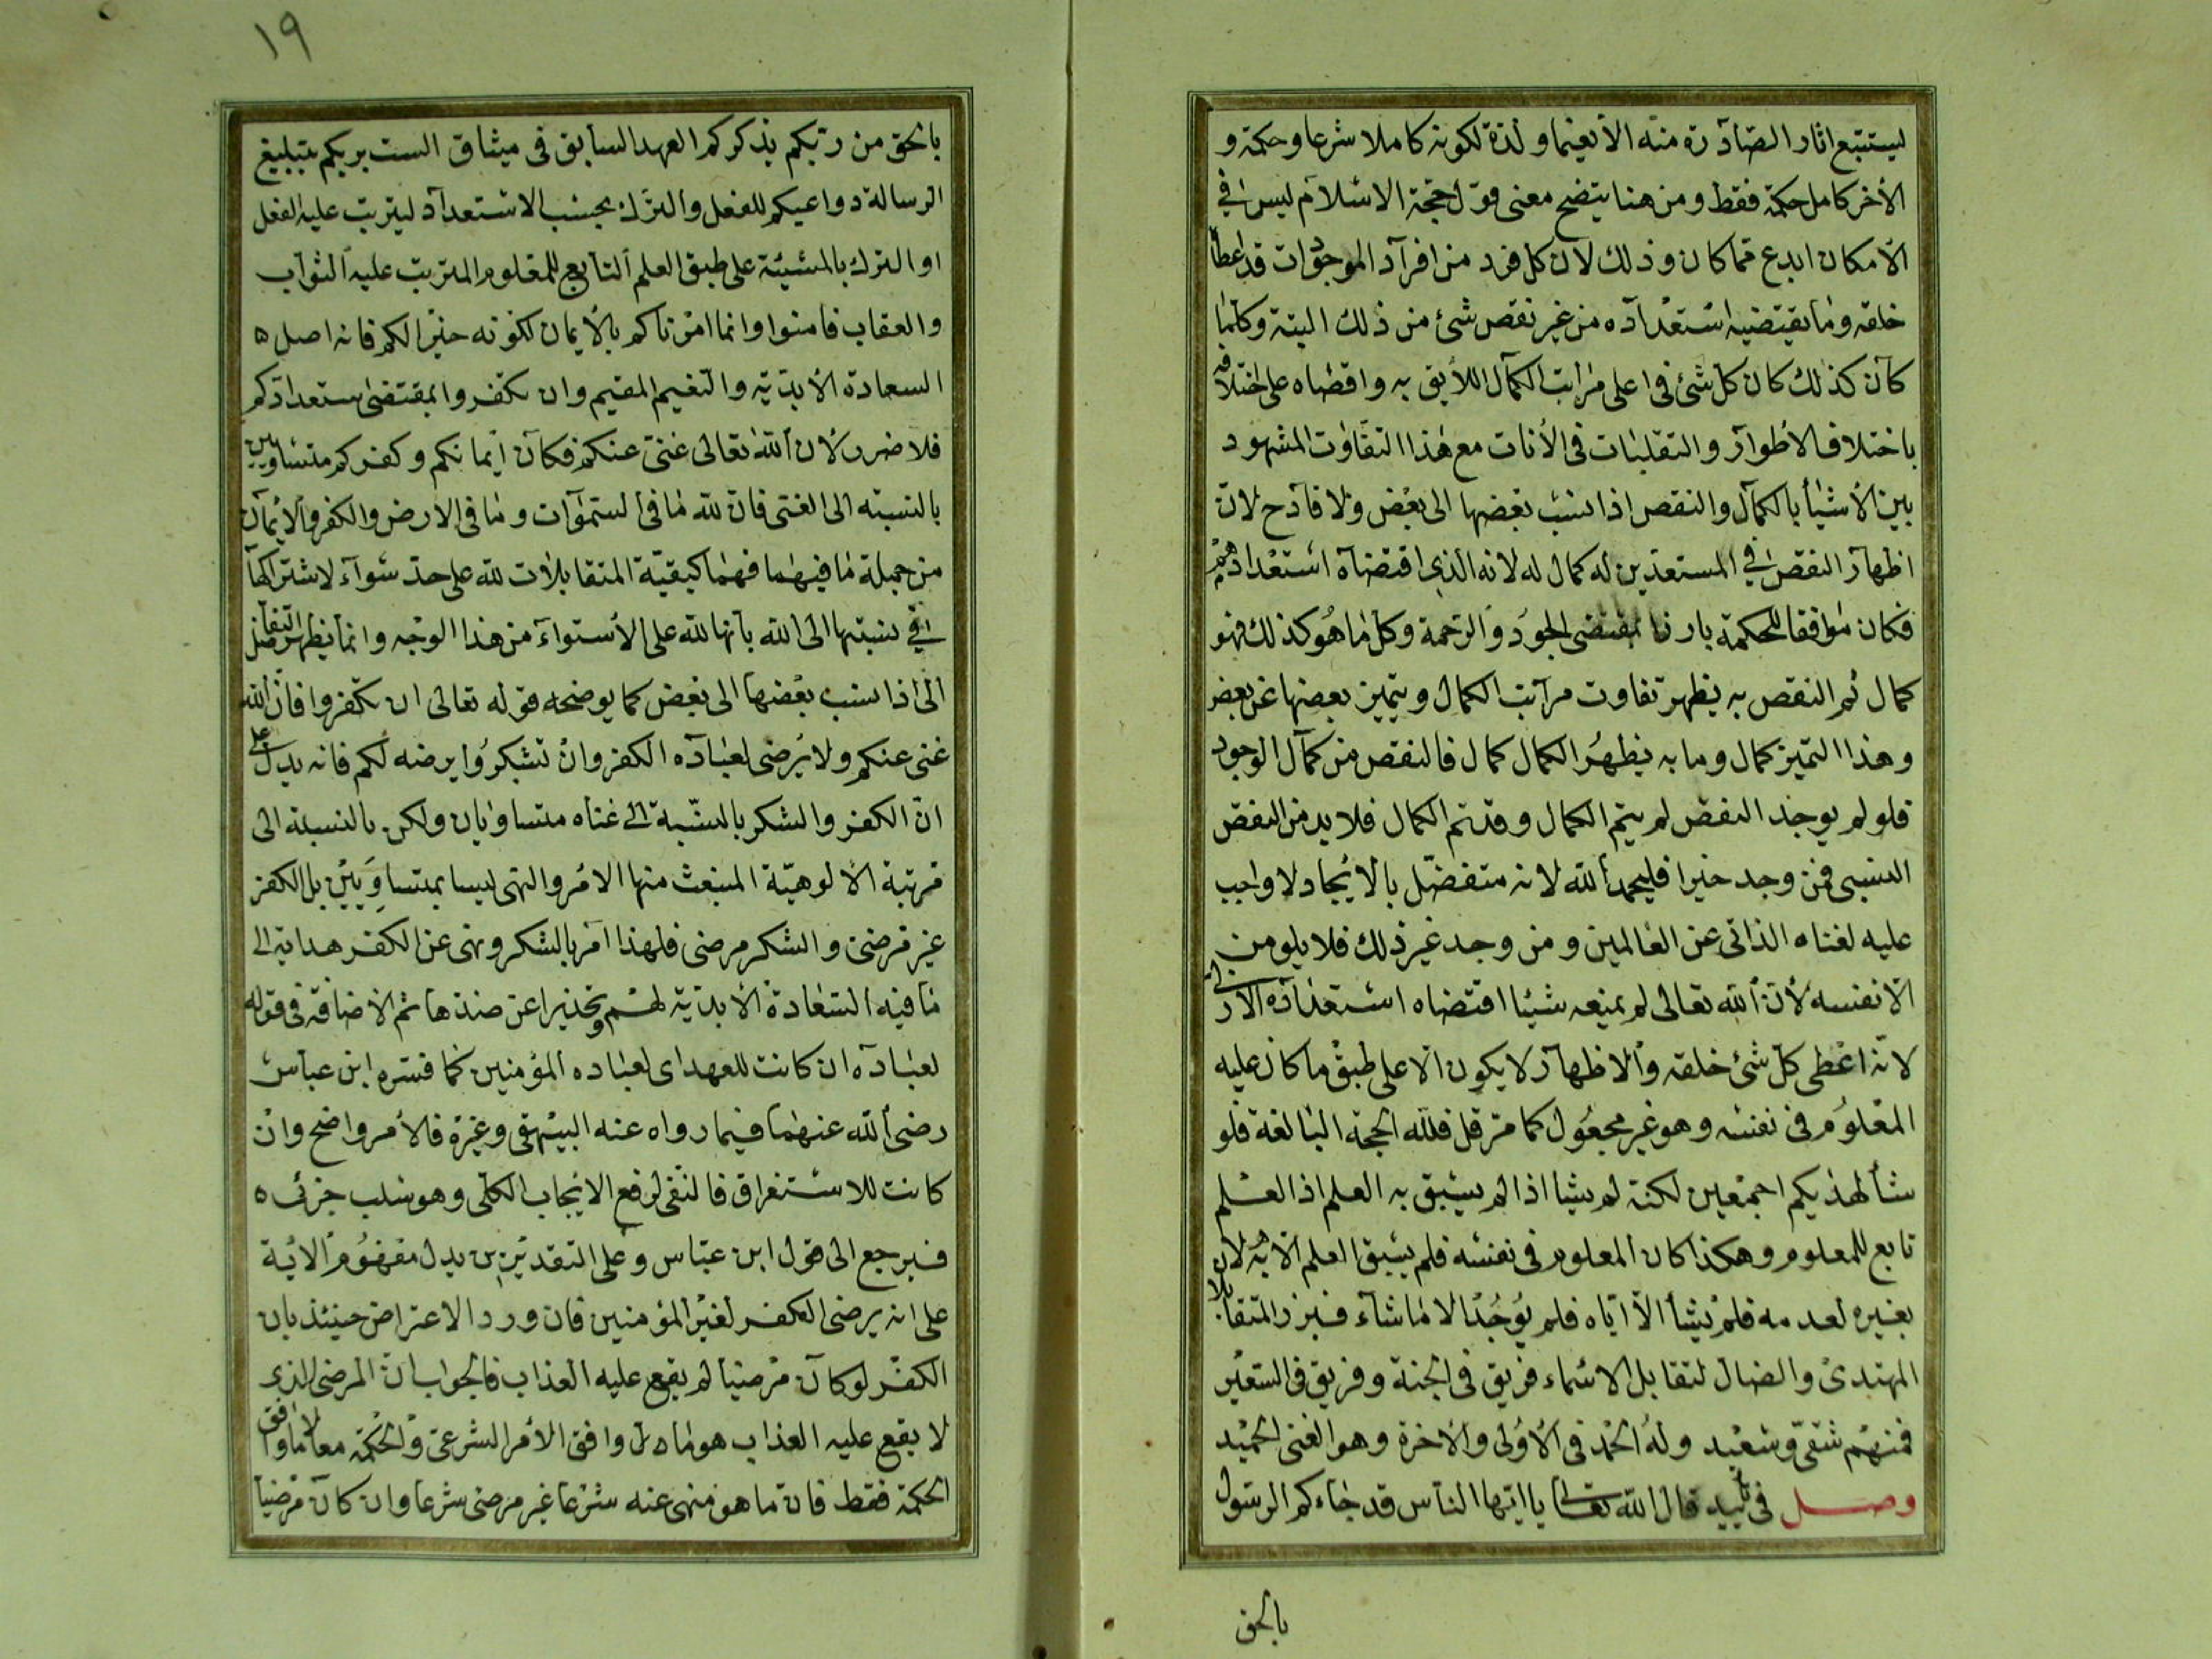 ليستتبع اثار الصادرة منه الا نعيما ولذة لكونه كاملا شرعا وحكمة و
الأخر كامل حكمة فقط ومن هنا يتضح معنى قول حجّة الاسلام ليس في
الامكان ابدع مما كان وذلك لان كل فرد من افراد الموجودات قد اعطا
خلقه وما يقتضيه استعداده من غير نقص شئ من ذلك البتة وكلما
كان كذلك كان كل شئ في اعلى مراتب الكمال اللايق به واقصاه على اختلافه
باختلاف الأطوار والتقلبات في الأنات مع هذا التفاوت المشهود
بين الأشيأ بالكمال والنقص اذا نسب بعضها الى بعض ولا قادح لان
اظهار النقص في المستعدين له كمال له لانه الذي اقتضاه استعدادهم
فكان موافقا للحكمة بارزا بمقتضى الجود والرحمة وكل ما هو كذلك فهو
كمال ثم النقص به يظهر تفاوت مراتب الكمال ويتميز بعضها عن بعض
وهذا التميز كمال وما به يظهر الكمال كمال فالنقص من كمال الوجود
فلو لم يوجد النقص لم يتم الكمال وقد تم الكمال فلا بد من النقص
النسبى فمن وجد خيرا فليحمد الله لانه متفضّل بالايجاد لا واجب
عليه لغناه الذاتى عن العالمين ومن وجد غير ذلك فلا يلومن
الا نفسه لأن الله تعالى لم يمنعه شيئا اقتضاه استعداده الازلى
لانه اعطى كل شئ خلقه والاظهار لا يكون الا على طبق ما كان عليه
المعلوم في نفسه وهو غير مجعول كما مر قل فلله الحجة البالغة فلو
شأ لهديكم اجمعين لكنه لم يشا اذ لم يسبق به العلم اذ العلم
تابع للمعلوم وهكذا كان المعلوم في نفسه فلم يسبق العلم الا به لان
بغيره لعدمه فلم يشأ الا اياه فلم يوجد الا ما شاء فبرز المتقابلا
المهتدى والضال لتقابل الاسماء فريق في الجنة وفريق في السعير
فمنهم شقىّ وسعيد وله الحمد في الأولى والأخرة وهو الغنى الحميد
وصل في تأييد قال الله تعالى يا ايها الناس قد جاءكم الرسول
بالحق
١٩
بالحق من ربكم يذكركم العهد السابق في ميثاق الست بربكم بتبليغ
الرسالة دواعيكم للفعل والترك بحسب الاستعداد ليترتب عليه الفعل
او الترك بالمشيئة على طبق العلم التابع للمعلوم المترتب عليه الثواب
والعقاب فامنوا وانما امرناكم بالأيمان لكونه خيرا لكم فانه اصل ه
السعادة الأبدية والنعيم المقيم وان تكفروا بمقتضى استعدادكم
فلا ضرر لأن الله تعالى غنى عنكم فكان ايمانكم وكفركم متساويين
بالنسبة الى الغنى فان لله ما في السموات وما في الارض والكفر والايمان
من جملة ما فيهما فهما كبقية المتقابلات لله على حد سواء لاشتراكها
في نسبتها الى الله بأنها لله على الاستواء من هذا الوجه وانما يظهر التفاضل
الى اذا نسب بعضها الى بعض كما يوضحه قوله تعالى ان تكفروا فان الله
غنى عنكم ولا يرضى لعباده الكفر وان تشكروا يرضه لكم فانه يدل على
انّ الكفر والشكر بالنسبة الى غناه متساويان ولكن بالنسبة الى
مرتبة الألوهيّة المنبعث منها الامر والنهى ليسا بمتساويين بل الكفر
غير مرضى والشكر مرضى فلهذا امر بالشكر ونهى عن الكفر هداية الى
ما فيه السعادة الأبدية لهم وتحذيرا عن ضدها ثم الاضافة في قوله
لعباده ان كانت للعهد اى لعباده المؤمنين كما فسره ابن عباس
رضى الله عنهما فيما رواه عنه البيهقى وغيره فالأمر واضح وان
كانت للاستغراق فالنفى لرفع الايجاب الكلّى وهو سلب جزئى ه
فيرجع الى قول ابن عبّاس وعلى التقديرين يدل مفهوم الأية
على انه يرضى الكفر لغير المؤمنين فان ورد الاعتراض حينئذ بان
الكفر لو كان مرضيا لم يقع عليه العذاب فالجواب ان المرضى الذى
لا يقع عليه العذاب هو ما وافق الأمر الشرعى والحكمة معا لا ما وافق
الحكمة فقط فان ما هو منهى عنه شرعا غير مرضى شرعا وان كان مرضيا